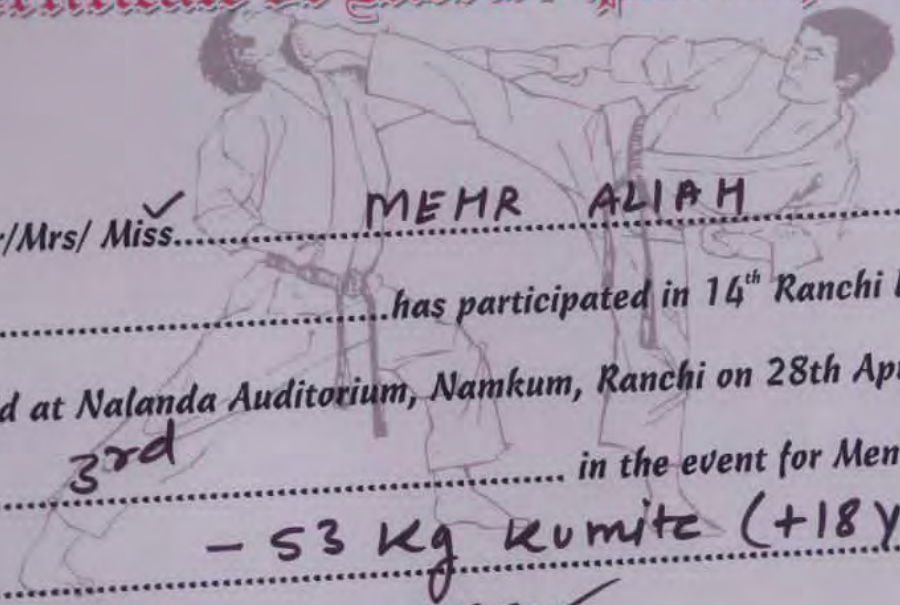 /Mrs/ Miss.......... MEHR ALIAH
..........has participated in 14th Ranchi
d at Nalanda Auditorium, Namkum, Ranchi on 28th Apr
3rd .......... in the event for Men
- 53 Kg Kumite (+18 Y